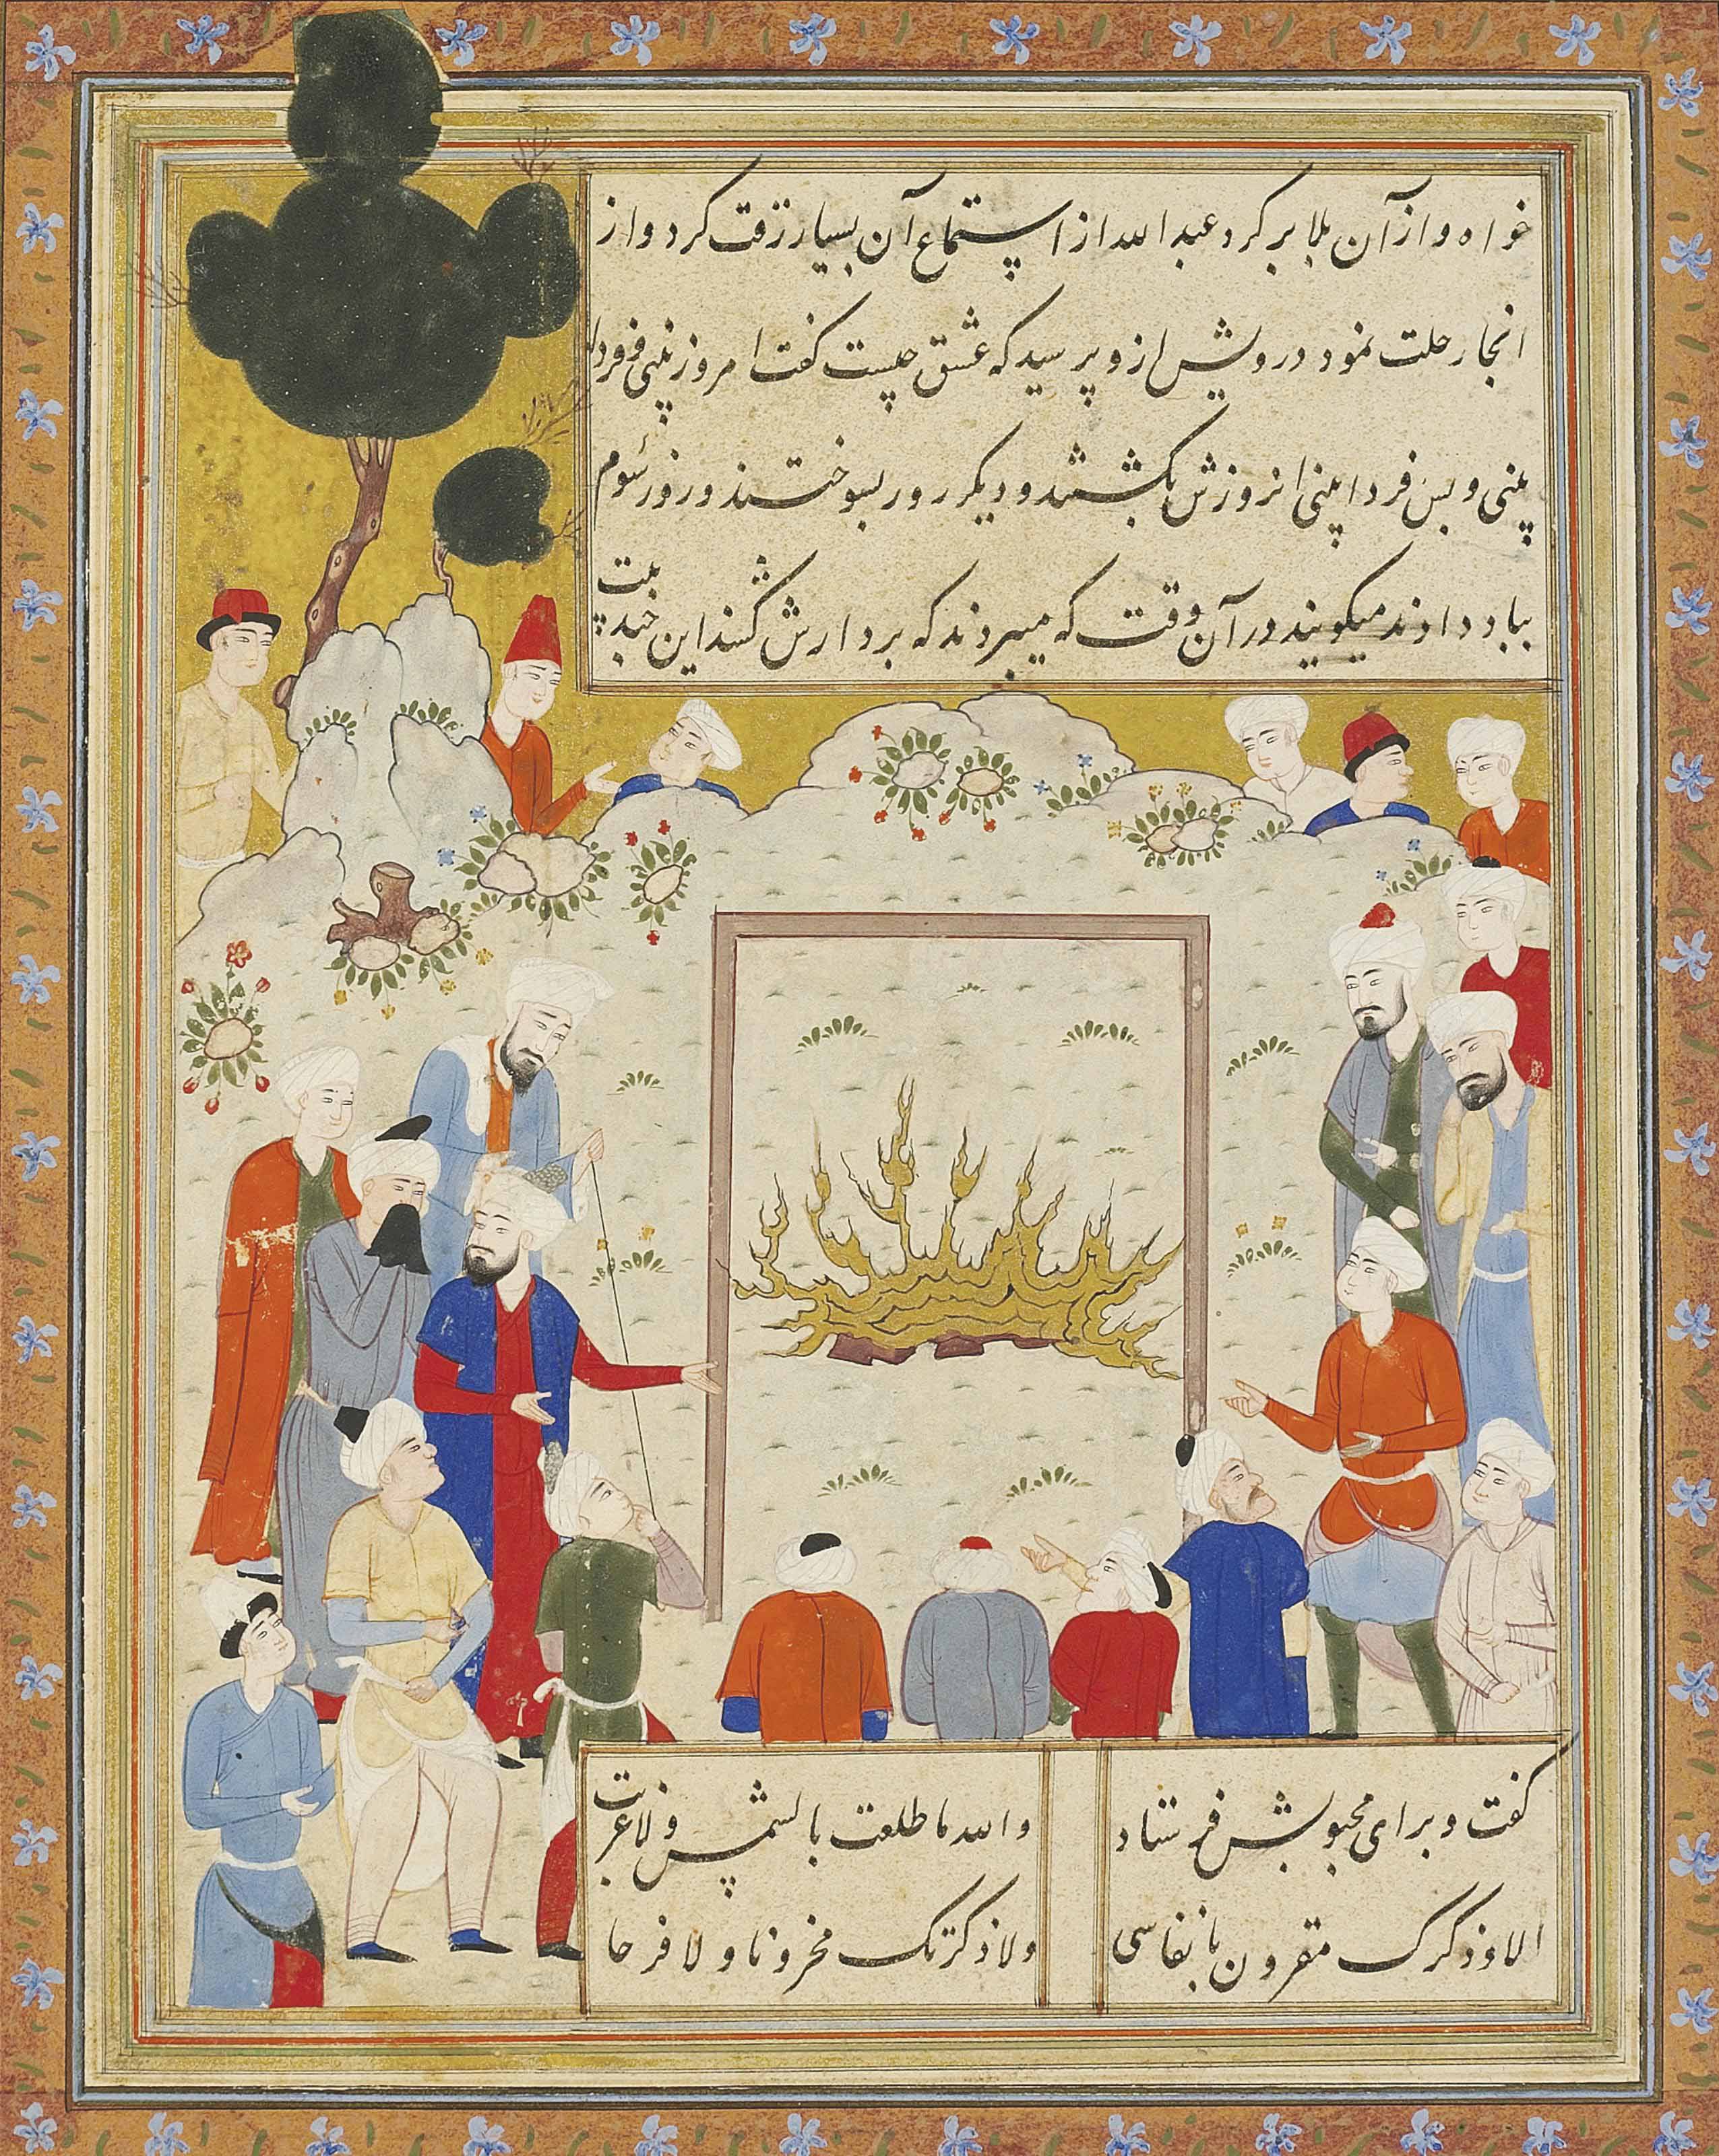 خواه و از آن بلا بر کرد عبد الله از استماع آن بسیار رقت کرد و از
انجا رحلت نمود درویش ازو پرسید که عشق چیست کفت امروز بینی و فردا
بینی و پس فردا بینی انروزش بکشتند و دیکر روز بسوختند و روز سوم
بباد دادند میکویند در آن وقت که میبردند که بر دارش کشند این چند بیت
کفت و برای محبوبش فرستاد
والله ما طلعت بالشمس ولا غربت
الا وذکرک مقرون بانفاسی
ولا ذکرتک محزونا ولا فرحا